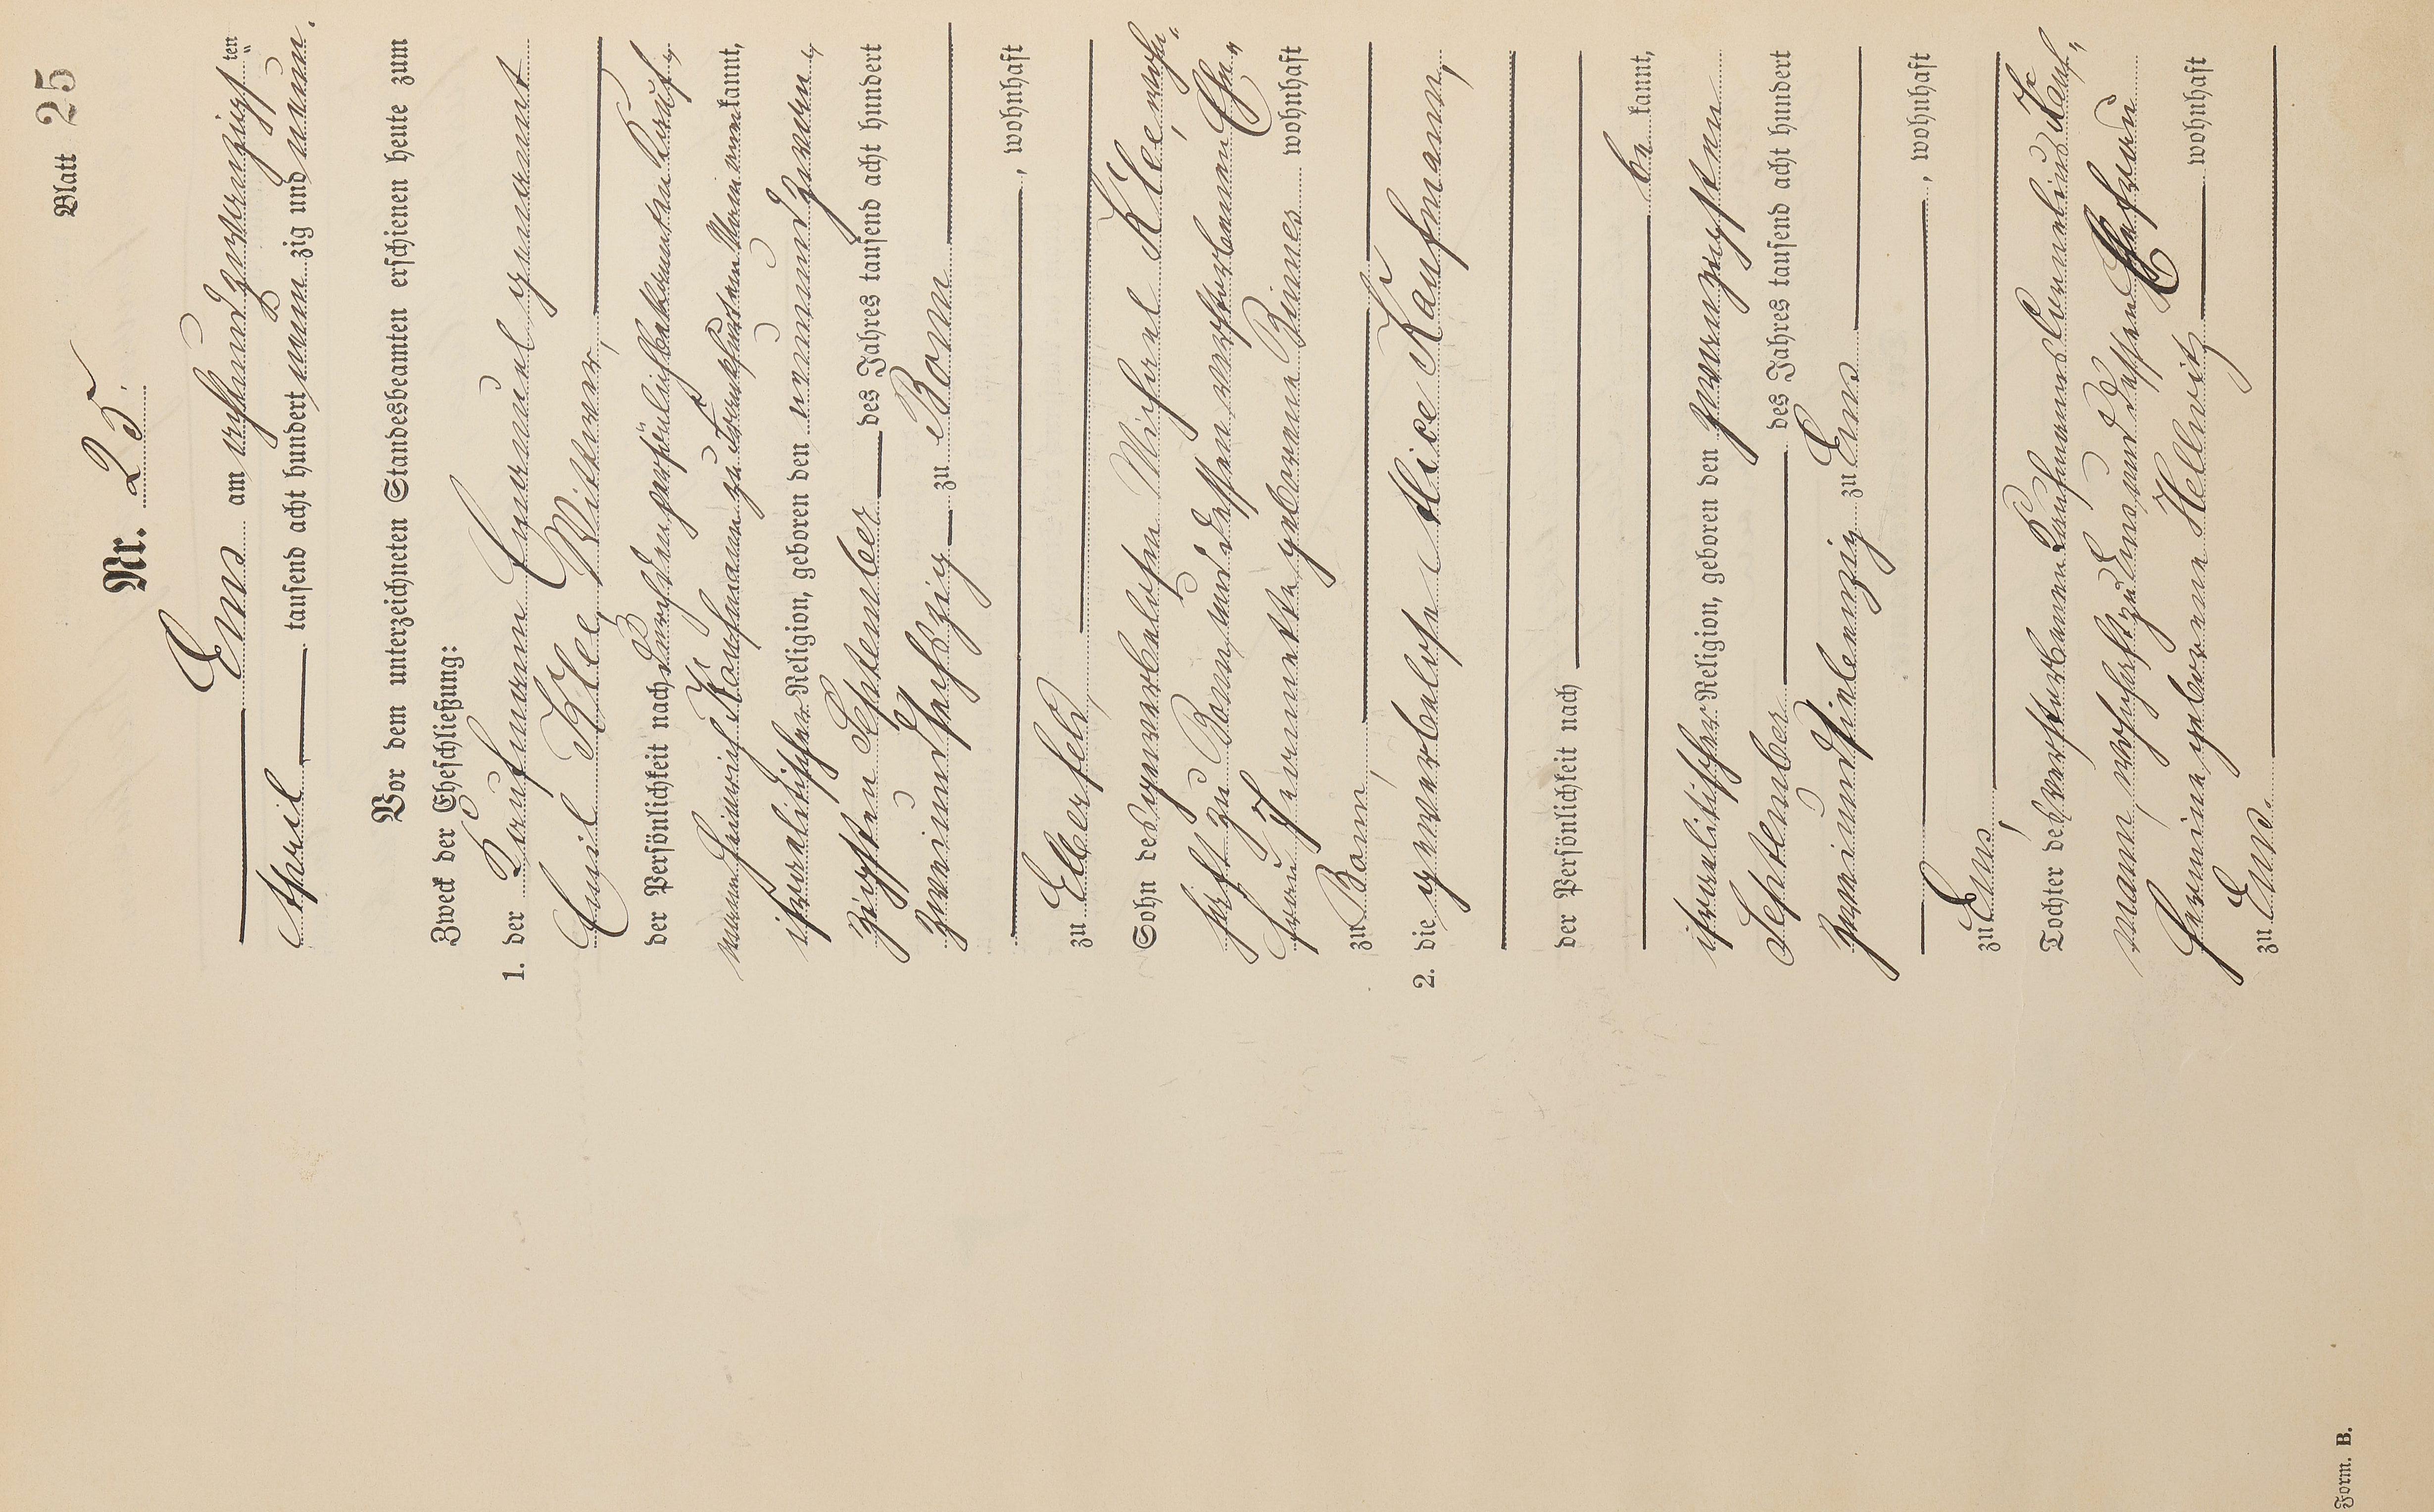 Blatt 25
Nr. 25.
Ems am achtundzwanzigsten
April tausend acht hundert neunzig und neun.
Vor dem unterzeichneten Standesbeamten erschienen heute zum
Zweck der Eheschließung:
1. der Kaufmann Emanuel genannt
Emil Klee, Wittwer,
der Persönlichkeit nach durch den persönlich bekannten Kauf„
mann Heinrich Kaufmann zu anerkannt,
israelitischer Religion, geboren den neunundzwan„
zigsten September des Jahres tausend acht hundert
zweiundsechszig zu Bonn
, wohnhaft
zu Elberfeld,
Sohn des gewerbelosen Michael Klee, wohn„
haft zu Bonn und dessen verstorbenen Ehe„
frau Hermine geborene wohnhaft
zu Bonn,
2. die gewerbelose Alice Kaufmann,
der Persönlichkeit nach
be kannt,
israelitischer Religion, geboren den zwanzigsten
September des Jahres tausend acht hundert
zweiundsiebenzig zu Ems
, wohnhaft
zu Ems,
Tochter des verstorbenen Kaufmanns Kauf„
mann, wohnhaft zu Ems und dessen Ehefrau
Hermine geborene Hellwitz wohnhaft
zu Ems.
Form. B.